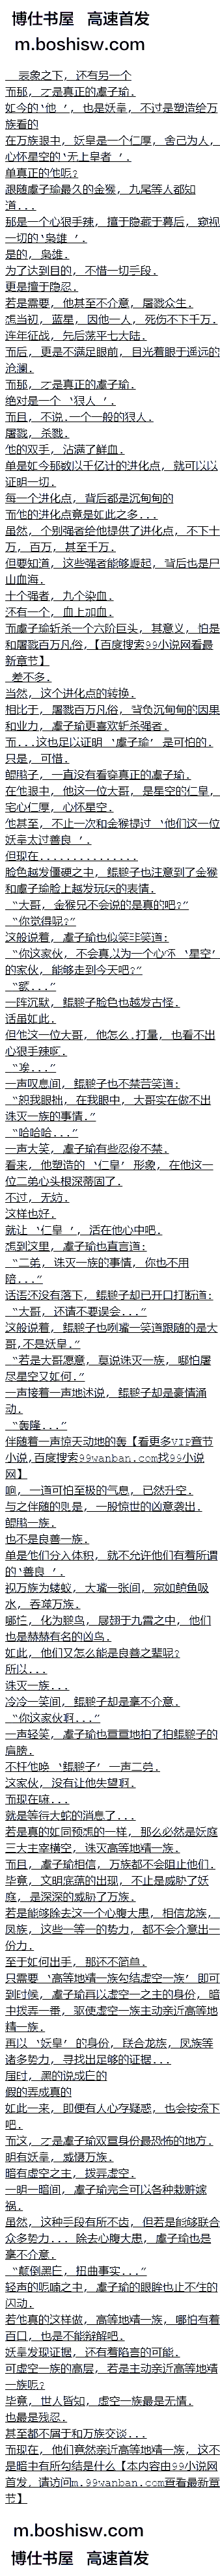 博仕书屋 高速首发
m.boshisw.com
表象之下，还有另一个
而那，才是真正的虞子瑜.
如今的‘他’，也是妖皇，不过是塑造给万
族看的
在万族眼中，妖皇是一个仁厚，舍己为人，
心怀星空的‘无上皇者’.
单真正的他呢?
跟随虞子瑜最久的金猴，九尾等人都知
道...
那是一个心狠手辣，擅于隐藏于幕后，窥视
一切的‘枭雄’.
是的，枭雄.
为了达到目的，不惜一切手段.
更是擅于隐忍.
若是需要，他甚至不介意，屠戮众生.
想当初，蓝星，因他一人，死伤不下千万.
连年征战，先后荡平七大陆.
而后，更是不满足眼前，目光着眼于遥远的
沧澜.
而那，才是真正的虞子瑜.
绝对是一个‘狠人’.
而且，不说.一个一般的狠人.
屠戮，杀戮.
他的双手，沾满了鲜血.
单是如今那数以千亿计的进化点，就可以以
证明一切.
每一个进化点，背后都是沉甸甸的
而他的进化点竟是如此之多...
虽然，个别强者给他提供了进化点，不下十
万，百万，甚至千万.
但要知道，这些强者能够崛起，背后也是尸
山血海.
十个强者，九个染血.
还有一个，血上加血.
而虞子瑜斩杀一个六阶巨头，其意义，怕是
和屠戮百万凡俗，【百度搜索99小说网看最
新章节】
差不多.
当然，这个进化点的转换.
相比于，屠戮百万凡俗，背负沉甸甸的因果
和业力，虞子瑜更喜欢斩杀强者.
而...这也足以证明‘虞子瑜’是可怕的.
只是，可惜.
鲲鹏子，一直没有看穿真正的虞子瑜.
在他眼中，他这一位大哥，是星空的仁皇，
宅心仁厚，心怀星空.
他甚至，不止一次和金猴提过‘他们这一位
妖皇太过善良’.
但现在...............
脸色越发僵硬之中，鲲鹏子也注意到了金猴
和虞子瑜脸上越发玩味的表情.
“大哥，金猴兄不会说的是真的吧?”
“你觉得呢?”
这般说着，虞子瑜也似笑非笑道:
“你这家伙，不会真以为一个心怀‘星空’
的家伙，能够走到今天吧?”
“额...”
一阵沉默，鲲鹏子脸色也越发古怪.
话虽如此.
但他这一位大哥，他怎么.打量，也看不出
心狠手辣啊.
“唉...”
一声叹息间，鲲鹏子也不禁苦笑道:
“恕我眼拙，在我眼中，大哥实在做不出
诛灭一族的事情.”
“哈哈哈...”
一声大笑，虞子瑜有些忍俊不禁.
看来，他塑造的‘仁皇’形象，在他这一
位二弟心头根深蒂固了.
不过，无妨.
这样也好.
就让‘仁皇’，活在他心中吧.
想到这里，虞子瑜也直言道:
“二弟，诛灭一族的事情，你也不用
陪...”
话语没有落下，鲲鹏子却已开口打断道:
“大哥，还请不要误会...”
这般说着，鲲鹏子也咧嘴一笑道跟随的是大
哥,不是妖皇.”
“若是大哥愿意，莫说诛灭一族，哪怕屠
尽星空又如何.”
一声接着一声地述说，鲲鹏子却是豪情涌
动.
“轰隆...”
伴随着一声惊天动地的轰【看更多VIP章节
小说,百度搜索99wanban.com找99小说
网】
响，一道可怕至极的气息，已然升空.
与之伴随的则是，一股惊世的凶意袭出.
鲲鹏一族.
也不是良善一族.
单是他们分入体积，就不允许他们有着所谓
的‘善良’.
视万族为蝼蚁，大嘴一张间，宛如鲸鱼吸
水，吞噬万族.
哪怕，化为鹏鸟，展翅于九霄之中，他们
也是赫赫有名的凶鸟.
如此，他们又怎么能是良善之辈呢?
所以...
诛灭一族...
冷冷一笑间，鲲鹏子却是毫不介意.
“你这家伙啊...”
一声轻笑，虞子瑜也重重地拍了拍鲲鹏子的
肩膀.
不枉他唤‘鲲鹏子’一声二弟.
这家伙，没有让他失望啊.
而现在嘛...
就是等待大蛇的消息了...
若是真的如同预想的一样，那么必然是妖庭
三大主宰横空，诛灭高等地精一族.
而且，虞子瑜相信，万族都不会阻止他们.
毕竟，文明底蕴的出现，不止是威胁了妖
庭，是深深的威胁了万族.
若是能够除去这一个心腹大患，相信龙族，
凤族，这些一等一的势力，都不会介意出一
份力.
至于如何出手，那还不简单.
只需要‘高等地精一族勾结虚空一族’即可
到时候，虞子瑜再以虚空一之主的身份，暗
中拨弄一番，驱使虚空一族主动亲近高等地
精一族.
再以‘妖皇’的身份，联合龙族，凤族等
诸多势力，寻找出足够的证据...
届时，黑的说成白的
假的弄成真的
如此一来，即便有人心存疑惑，也会按捺下
吧.
而这，才是虞子瑜双重身份最恐怖的地方.
明有妖皇，威慑万族.
暗有虚空之主，拨弄虚空.
一明一暗间，虞子瑜完全可以各种栽赃嫁
祸.
虽然，这种手段有所不齿，但若是能够联合
众多势力... 除去心腹大患，虞子瑜也是
毫不介意.
“颠倒黑白，扭曲事实...”
轻声的呢喃之中，虞子瑜的眼眸也止不住的
闪动.
若他真的这样做，高等地精一族，哪怕有着
百口，也是不能辩解吧.
妖皇发现证据，还有着陷害的可能.
可虚空一族的高层，若是主动亲近高等地精
一族呢?
毕竟，世人皆知，虚空一族最是无情.
也最是残忍.
甚至都不屑于和万族交谈...
而现在，他们竟然亲近高等地精一族，这不
是暗中有所勾结是什么【本内容由99小说网
首发，请访问m.99wanban.com查看最新章
节】
m.boshisw.com
博仕书屋 高速首发